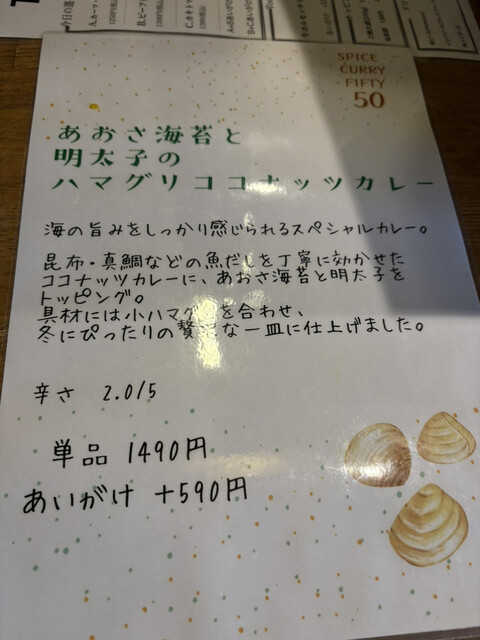 SPICE
CURRY
FIFTY
50
あおさ海苔と
明太子の
ハマグリココナッツカレー
海の旨みをしっかり感じられるスペシャルカレー。
昆布・真鯛などの魚だしを丁寧に効かせた
ココナッツカレーに、あおさ海苔と明太子を
トッピング。
具材には小ハマグリを合わせ、
冬にぴったりの贅沢な一皿に仕上げました。
辛さ 2.0/5
単品 1490円
あいがけ +590円